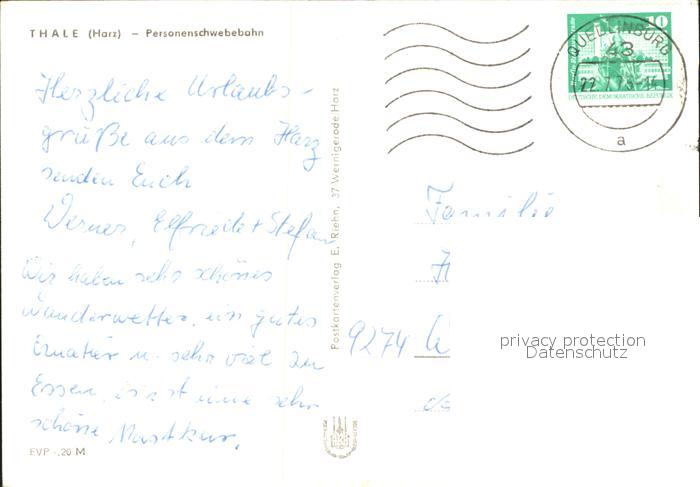 THALE (Harz) – Personenschwebebahn
Herzliche Urlaubs-
grüße aus dem Harz
senden Euch
Werner, Elfriede + Stefan
Wir haben sehr schönes
Wanderwetter, ein gutes
Quartier u. sehr viel zu
Essen, es ist eine sehr
schöne Mastkur.
EVP -,20 M
Postkartenverlag E. Riehn, 37 Wernigerode Harz
QUEDLINBURG
43
22
a
10
DEUTSCHE DEMOKRATISCHE REPUBLIK
Familie
H
9274 W
privacy protection
Datenschutz